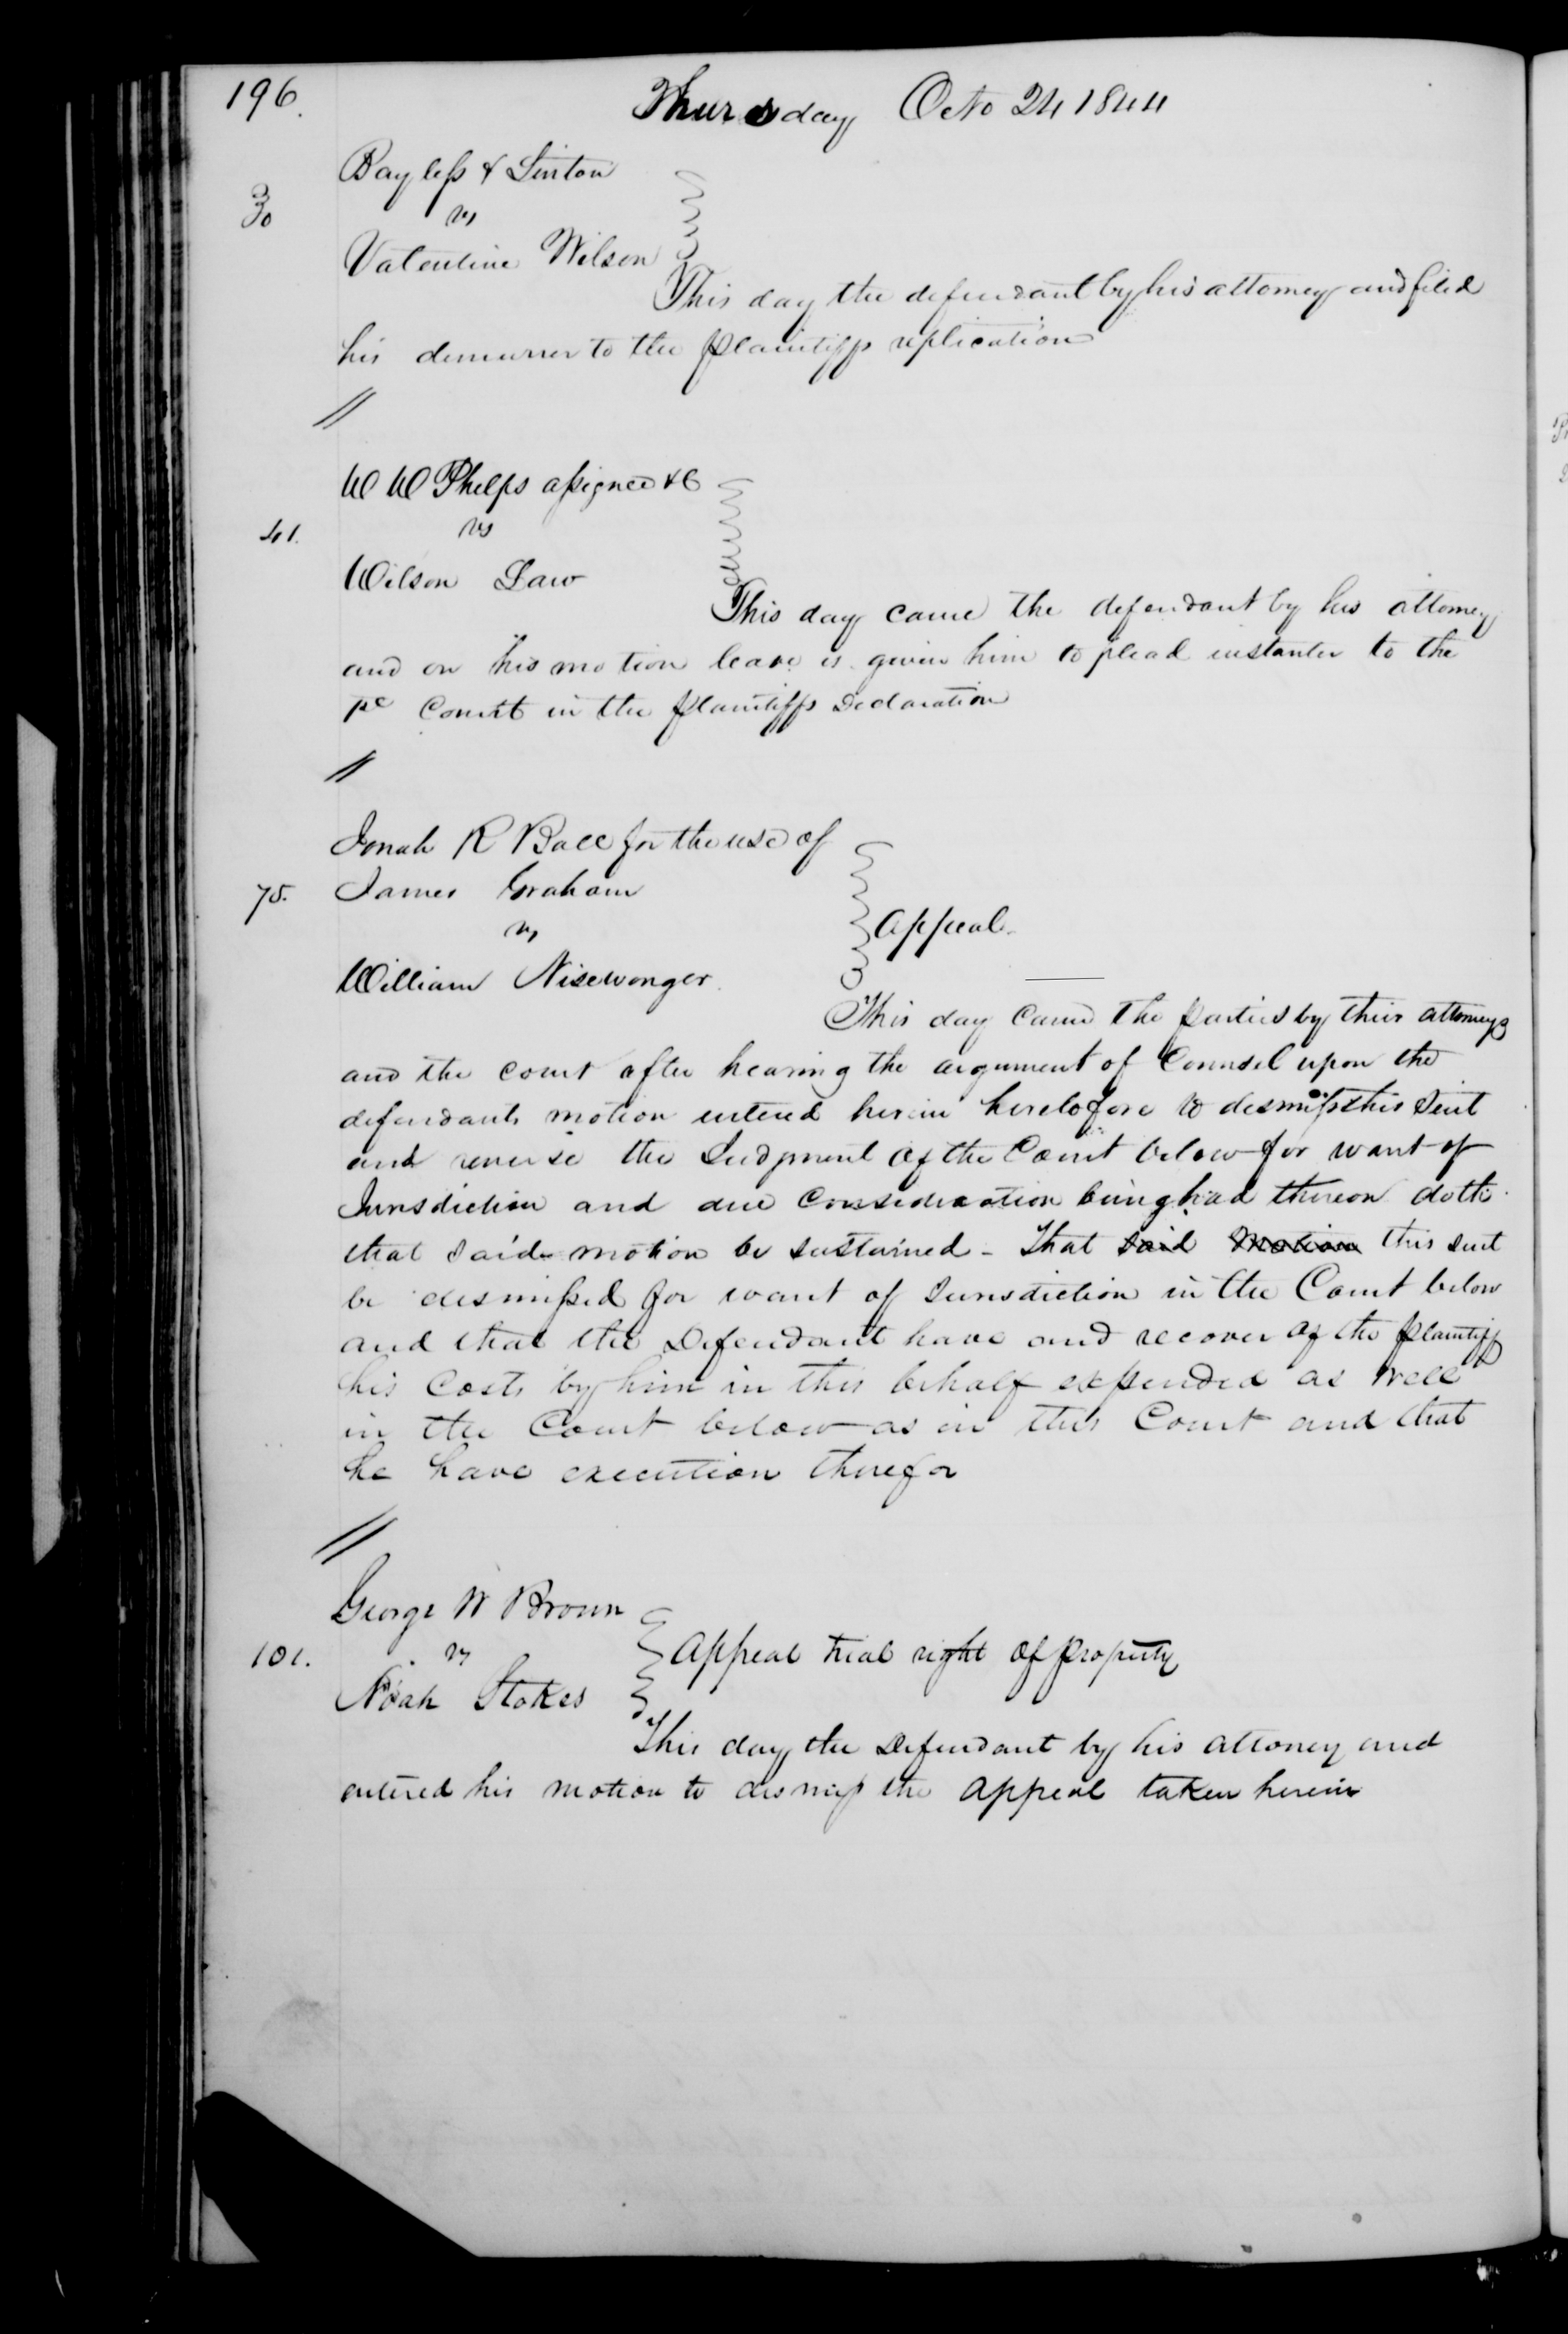 196.
Thursday Octo 24 1844
Bayless & Linton
30
vs
Valentine Wilson
This day the defendant by his attorney and filed
his demurrer to the plaintiffs replication
//
W W Phelps assignee &C
41.
vs
Wilson Law
This day came the defendant by his attorney
and on his motion leave is given him to plead instanter to the
Count in the plaintiffs Declaration
//
Jonah R Ball for the use of
75. James Graham
vs
Appeal
William Nisewonger.
This day came the parties by their attorneys
and the court after hearing the argument of Counsel upon the
defendants motion entered herein heretofore to dismiss this Suit
and reverse the Judgment of the Court below for want of
Jurisdiction and due Consideration being had thereon doth
that said motion be sustained - that said Motion this suit
be dismissed for want of Jurisdiction in the Court below
and that the Defendant have and recover of the plaintiff
his Costs by him in this behalf expended as well
in the Court below as in this Court and that
he have execution therefor
//
George W Brown
101.
vs
Appeal trial right of property
Noah Stokes
This day the Defendant by his attorney and
entered his motion to dismiss the appeal taken herein